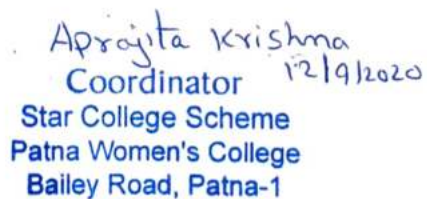 Aprajita Krishna
12/9/2020
Coordinator
Star College Scheme
Patna Women's College
Bailey Road, Patna-1